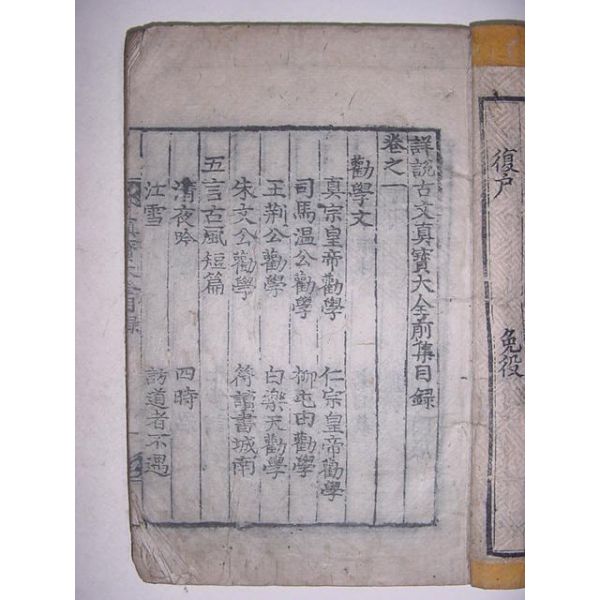 復户
免役
詳說古文真寶大全前集目錄
卷之一
勸學文
真宗皇帝勸學 仁宗皇帝勸學
司馬溫公勸學 柳屯田勸學
王荊公勸學 白樂天勸學
朱文公勸學 符讀書城南
五言古風短篇
清夜吟 四時
江雪 訪道者不遇
真寶大全目錄